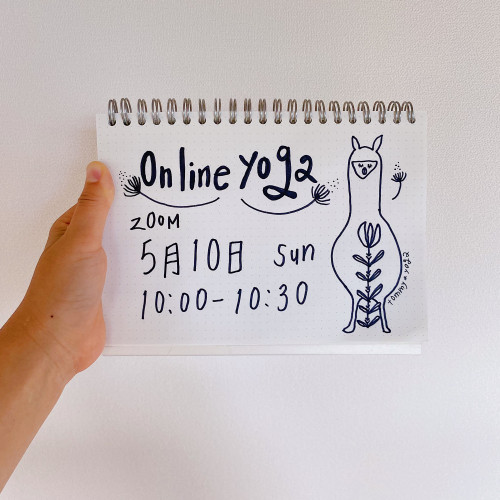 Online yoga
ZOOM
5月10日 sun
10:00-10:30
tommy_a yoga